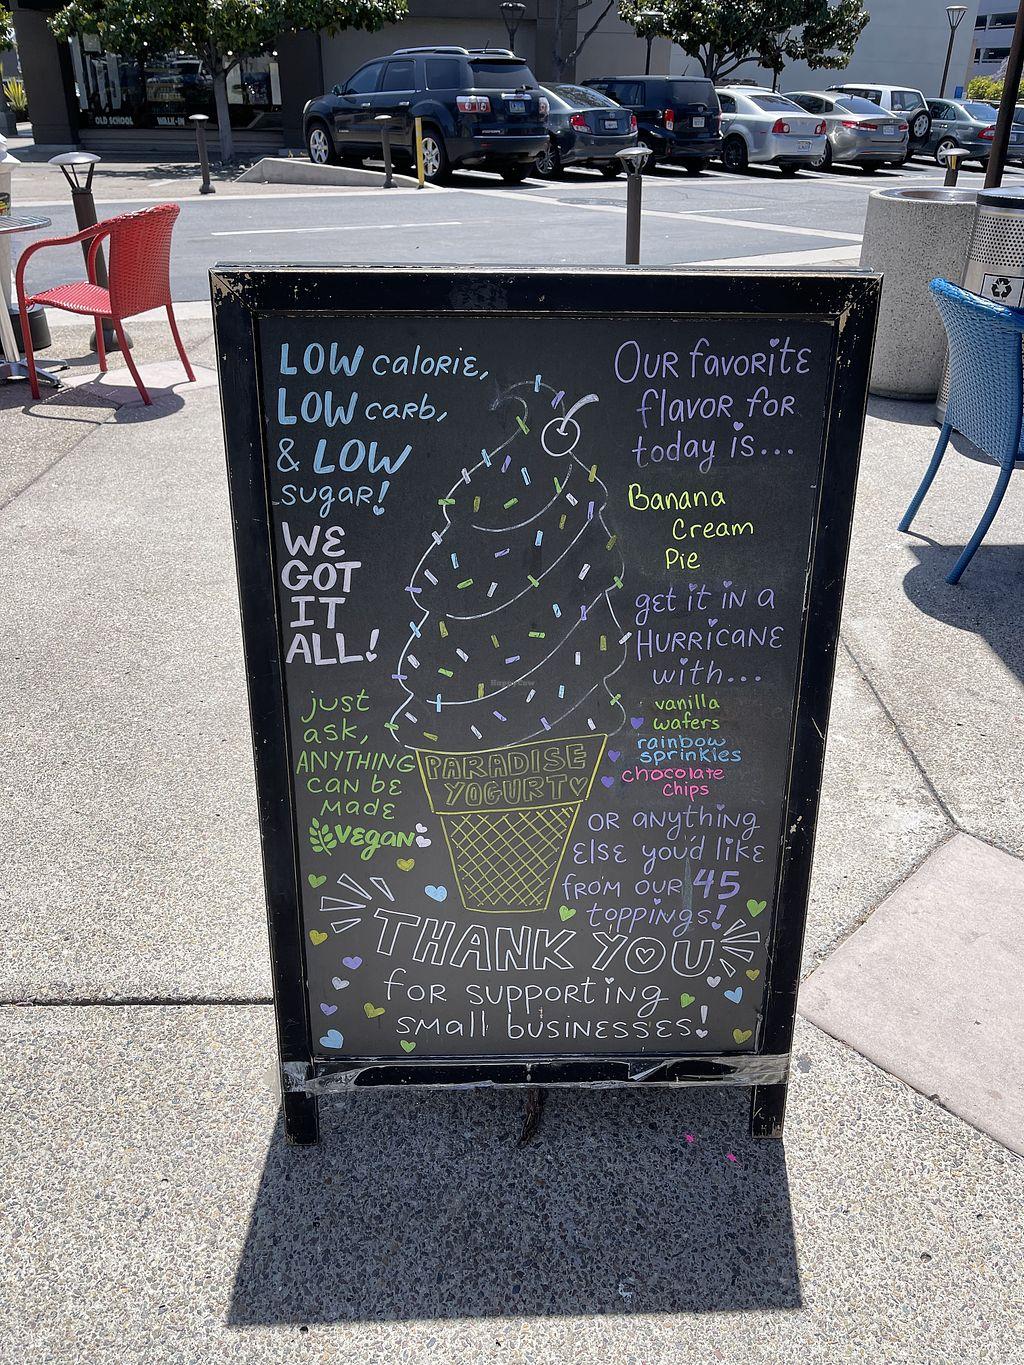 OLD SCHOOL WALK-IN
LOW calorie,
LOW carb,
& LOW
sugar!
WE
GOT
IT
ALL!
just
ask,
ANYTHING
can be
made
vegan
PARADISE
YOGURT
Our favorite
flavor for
today is...
Banana
Cream
Pie
get it in a
HURRICANE
with...
vanilla
wafers
rainbow
sprinkles
chocolate
chips
or anything
else you'd like
from our 45
toppings!
THANK YOU
for supporting
small businesses!
HappyCow